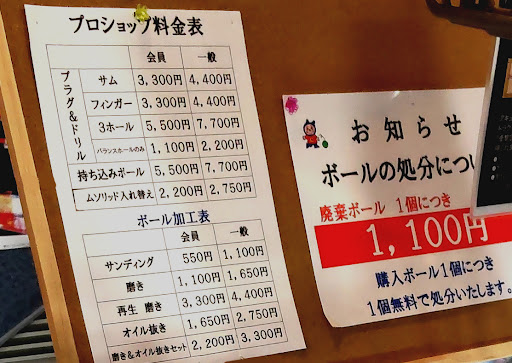 プロショップ料金表
会員 一般
プラグ&ドリル
サム 3,300円 4,400円
フィンガー 3,300円 4,400円
3ホール 5,500円 7,700円
バランスホールのみ 1,100円 2,200円
持ち込みボール 5,500円 7,700円
ムソリッド入れ替え 2,200円 2,750円
ボール加工表
会員 一般
サンディング 550円 1,100円
磨き 1,100円 1,650円
再生 磨き 3,300円 4,400円
オイル抜き 1,650円 2,750円
磨き&オイル抜きセット 2,200円 3,300円
お知らせ
ボールの処分につい
廃棄ボール 1個につき
1,100円
購入ボール1個につき
1個無料で処分いたします。